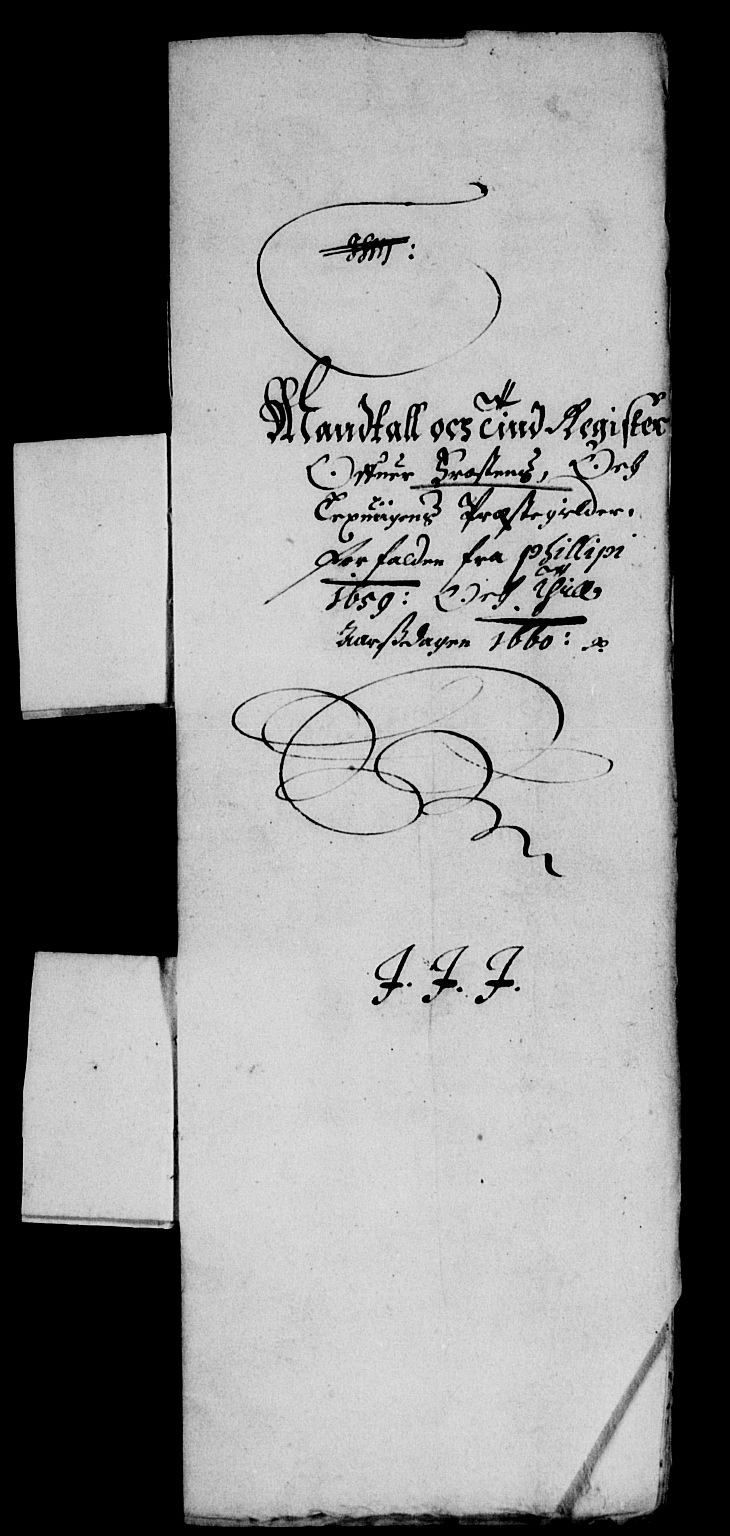 Mandtall och Tind Register
Offuer Frostens, Och
Lexuigens Præstegielder.
for falden fra Phillipi
1659: Och Thill
Aarsdagen 1660:
J. J. J.